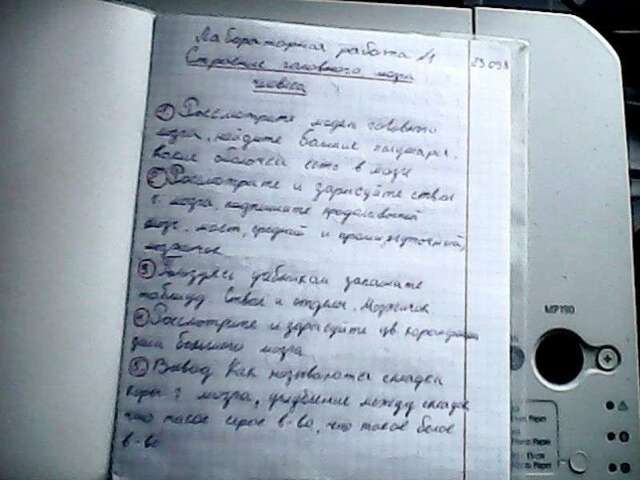 Лабораторная работа 1
Строение головного мозга
человека
① Рассмотрите модель головного
мозга, найдите большие полушария.
Какие оболочки есть в мозге
② Рассмотрите и зарисуйте ствол
г. мозга, подпишите продолговатый
мозг, мост, средний и промежуточный,
мозжечок
③ учебником заполните
таблицу. Ствол и отделы. Мозжечок
④ Рассмотрите и зарисуйте цв. карандашами
большого мозга
⑤ Вывод Как называются складки
коры г. мозга, углубление между складок
что такое серое в-во, что такое белое
в-во
MP190